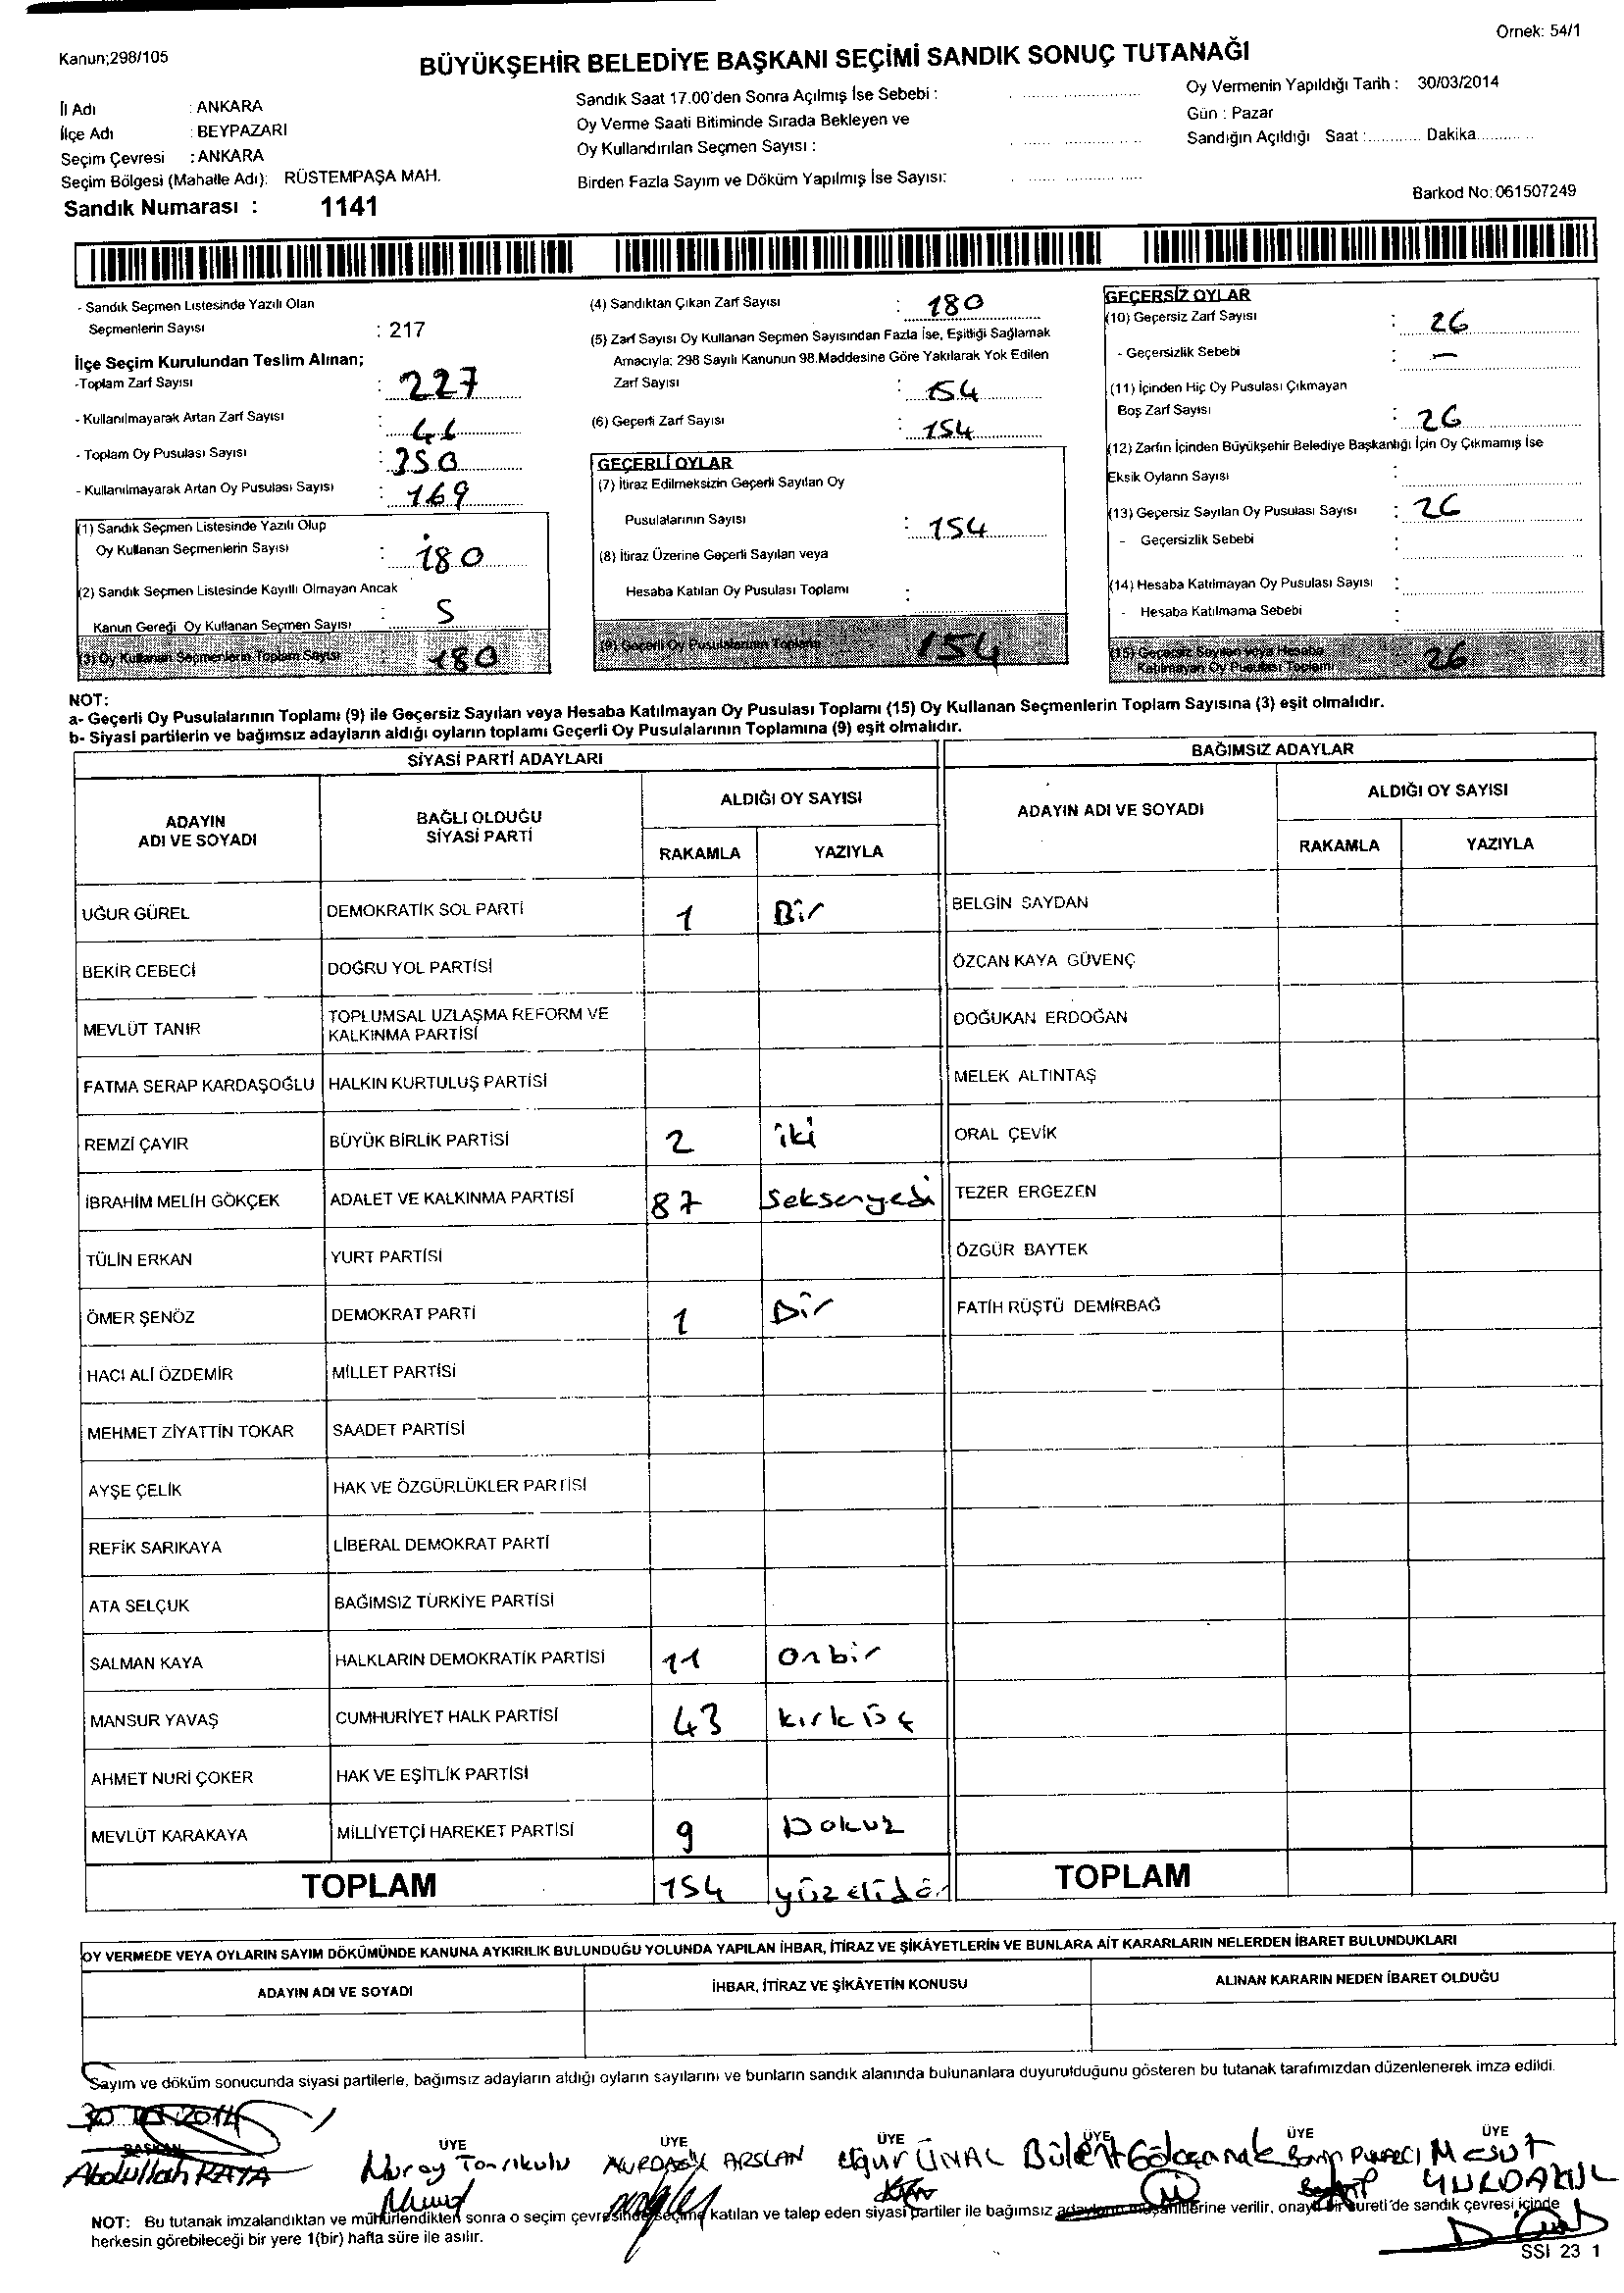 Ornek: 54/1
Kanun;298/105
BÜYÜKŞEHİR BELEDİYE BAŞKANI SEÇİMİ SANDIK SONUÇ TUTANAĞI
İl Adı : ANKARA
İlçe Adı : BEYPAZARI
Seçim Çevresi : ANKARA
Seçim Bölgesi (Mahalle Adı): RÜSTEMPAŞA MAH.
Sandık Numarası : 1141
Sandık Saat 17.00'den Sonra Açılmış İse Sebebi :
Oy Verme Saati Bitiminde Sırada Bekleyen ve
Oy Kullandırılan Seçmen Sayısı :
Birden Fazla Sayım ve Döküm Yapılmış İse Sayısı:
Oy Vermenin Yapıldığı Tarih : 30/03/2014
Gün : Pazar
Sandığın Açıldığı Saat :............ Dakika............
Barkod No: 061507249
- Sandık Seçmen Listesinde Yazılı Olan
Seçmenlerin Sayısı : 217
İlçe Seçim Kurulundan Teslim Alınan;
-Toplam Zarf Sayısı : 227
- Kullanılmayarak Artan Zarf Sayısı :
- Toplam Oy Pusulası Sayısı : 350
- Kullanılmayarak Artan Oy Pusulası Sayısı : 169
(1) Sandık Seçmen Listesinde Yazılı Olup
Oy Kullanan Seçmenlerin Sayısı : 180
(2) Sandık Seçmen Listesinde Kayıtlı Olmayan Ancak
Kanun Gereği Oy Kullanan Seçmen Sayısı :
(3) Oy Kullanan Seçmenlerin Toplam Sayısı : 180
(4) Sandıktan Çıkan Zarf Sayısı : 180
(5) Zarf Sayısı Oy Kullanan Seçmen Sayısından Fazla İse, Eşitliği Sağlamak
Amacıyla; 298 Sayılı Kanunun 98.Maddesine Göre Yakılarak Yok Edilen
Zarf Sayısı : 154
(6) Geçerli Zarf Sayısı : 154
GEÇERLİ OYLAR
(7) İtiraz Edilmeksizin Geçerli Sayılan Oy
Pusulalarının Sayısı : 154
(8) İtiraz Üzerine Geçerli Sayılan veya
Hesaba Katılan Oy Pusulası Toplamı :
(9) Geçerli Oy Pusulalarının Toplamı 154
GEÇERSİZ OYLAR
(10) Geçersiz Zarf Sayısı : 26
- Geçersizlik Sebebi : —
(11) İçinden Hiç Oy Pusulası Çıkmayan
Boş Zarf Sayısı : 26
(12) Zarfın İçinden Büyükşehir Belediye Başkanlığı İçin Oy Çıkmamış İse
Eksik Oyların Sayısı :
(13) Geçersiz Sayılan Oy Pusulası Sayısı : 26
- Geçersizlik Sebebi :
(14) Hesaba Katılmayan Oy Pusulası Sayısı :
- Hesaba Katılmama Sebebi :
(15) Geçersiz Sayılan veya Hesaba
Katılmayan Oy Pusulası Toplamı 26
NOT:
a- Geçerli Oy Pusulalarının Toplamı (9) ile Geçersiz Sayılan veya Hesaba Katılmayan Oy Pusulası Toplamı (15) Oy Kullanan Seçmenlerin Toplam Sayısına (3) eşit olmalıdır.
b- Siyasi partilerin ve bağımsız adayların aldığı oyların toplamı Geçerli Oy Pusulalarının Toplamına (9) eşit olmalıdır.
SİYASİ PARTİ ADAYLARI
BAĞIMSIZ ADAYLAR
ADAYIN ADI VE SOYADI
BAĞLI OLDUĞU SİYASİ PARTİ
ALDIĞI OY SAYISI
RAKAMLA YAZIYLA
ADAYIN ADI VE SOYADI
ALDIĞI OY SAYISI
RAKAMLA YAZIYLA
UĞUR GÜREL DEMOKRATİK SOL PARTİ 1 Bir BELGİN SAYDAN
BEKİR CEBECİ DOĞRU YOL PARTİSİ ÖZCAN KAYA GÜVENÇ
MEVLÜT TANIR TOPLUMSAL UZLAŞMA REFORM VE KALKINMA PARTİSİ DOĞUKAN ERDOĞAN
FATMA SERAP KARDAŞOĞLU HALKIN KURTULUŞ PARTİSİ MELEK ALTINTAŞ
REMZİ ÇAYIR BÜYÜK BİRLİK PARTİSİ 2 iki ORAL ÇEVİK
İBRAHİM MELİH GÖKÇEK ADALET VE KALKINMA PARTİSİ 87 Seksenyedi TEZER ERGEZEN
TÜLİN ERKAN YURT PARTİSİ ÖZGÜR BAYTEK
ÖMER ŞENÖZ DEMOKRAT PARTİ 1 Bir FATİH RÜŞTÜ DEMİRBAĞ
HACI ALİ ÖZDEMİR MİLLET PARTİSİ
MEHMET ZİYATTİN TOKAR SAADET PARTİSİ
AYŞE ÇELİK HAK VE ÖZGÜRLÜKLER PARTİSİ
REFİK SARIKAYA LİBERAL DEMOKRAT PARTİ
ATA SELÇUK BAĞIMSIZ TÜRKİYE PARTİSİ
SALMAN KAYA HALKLARIN DEMOKRATİK PARTİSİ 11 Onbir
MANSUR YAVAŞ CUMHURİYET HALK PARTİSİ 43 kırküç
AHMET NURİ ÇOKER HAK VE EŞİTLİK PARTİSİ
MEVLÜT KARAKAYA MİLLİYETÇİ HAREKET PARTİSİ 9 Dokuz
TOPLAM 154 yüzelidör TOPLAM
OY VERMEDE VEYA OYLARIN SAYIM DÖKÜMÜNDE KANUNA AYKIRILIK BULUNDUĞU YOLUNDA YAPILAN İHBAR, İTİRAZ VE ŞİKÂYETLERİN VE BUNLARA AİT KARARLARIN NELERDEN İBARET BULUNDUKLARI
ADAYIN ADI VE SOYADI İHBAR, İTİRAZ VE ŞİKÂYETİN KONUSU ALINAN KARARIN NEDEN İBARET OLDUĞU
Sayım ve döküm sonucunda siyasi partilerle, bağımsız adayların aldığı oyların sayılarını ve bunların sandık alanında bulunanlara duyurulduğunu gösteren bu tutanak tarafımızdan düzenlenerek imza edildi.
BAŞKAN ÜYE ÜYE ÜYE ÜYE ÜYE ÜYE
Abdullah KAYA Nuray Tanrıkulu ARSLAN Uğur ÜNAL Bülent MESUT
NOT: Bu tutanak imzalandıktan ve mühürlendikten sonra o seçim çevresinde seçime katılan ve talep eden siyasi partiler ile bağımsız adayların müşahitlerine verilir, onaylı bir sureti de sandık çevresi içinde
herkesin görebileceği bir yere 1(bir) hafta süre ile asılır.
SSI 23 1